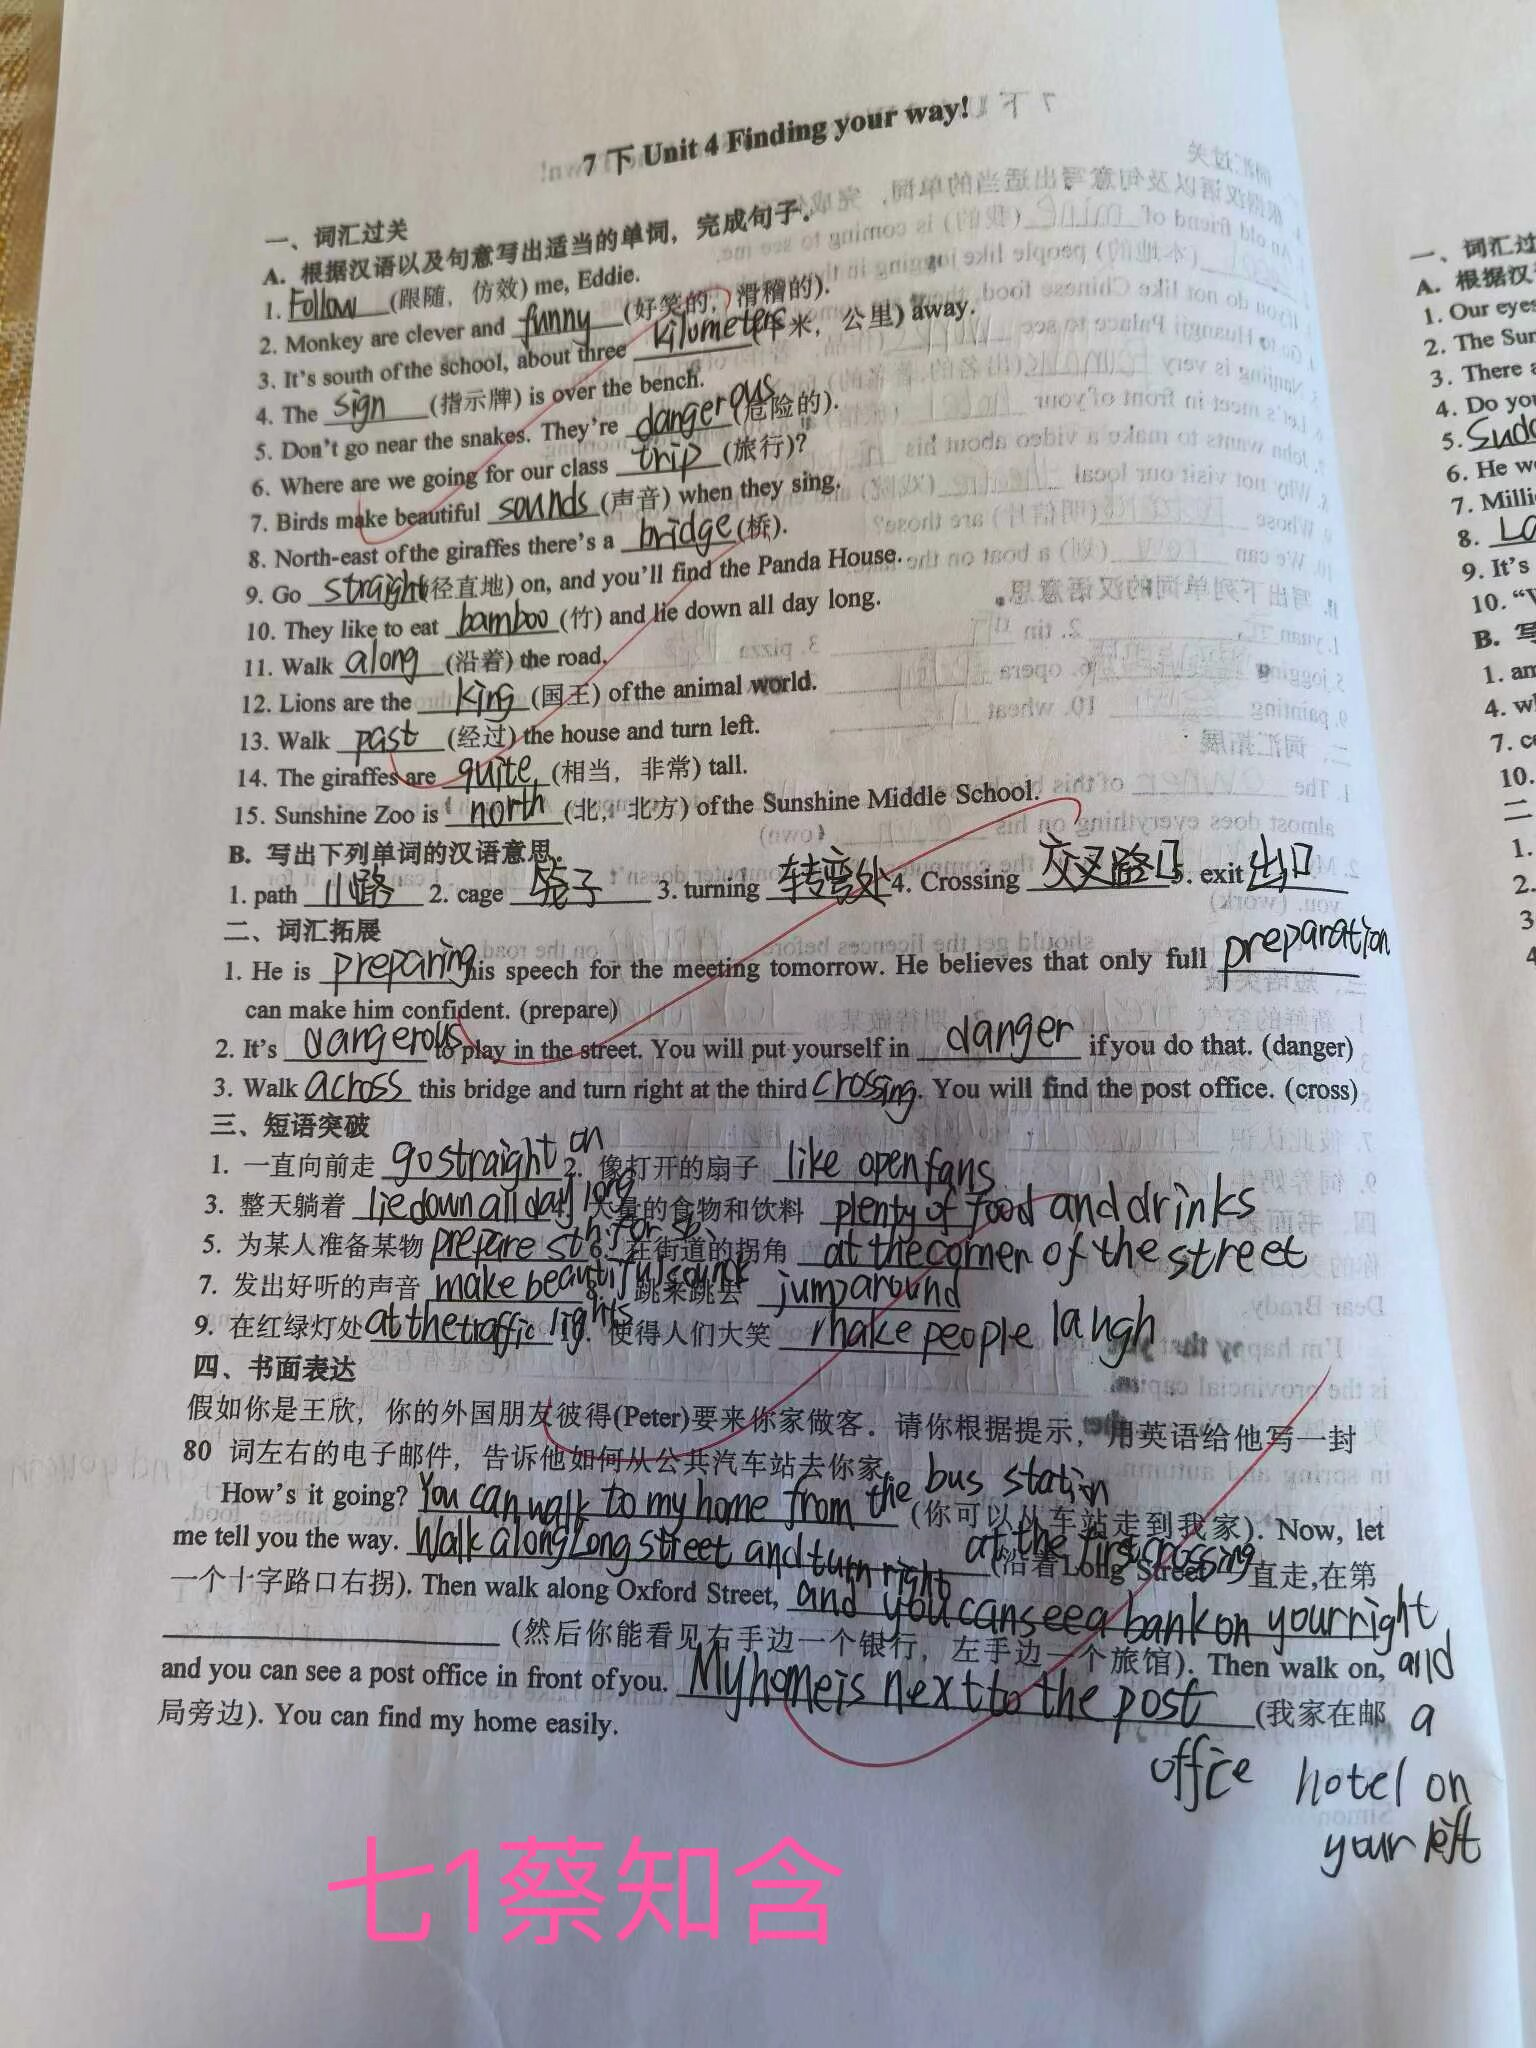 7下 Unit 4 Finding your way!
一、词汇过关
A. 根据汉语以及句意写出适当的单词，完成句子.
1. Follow (跟随，仿效) me, Eddie.
2. Monkey are clever and funny (好笑的，滑稽的).
3. It's south of the school, about three kilometers (千米，公里) away.
4. The sign (指示牌) is over the bench.
5. Don't go near the snakes. They're dangerous (危险的).
6. Where are we going for our class trip (旅行)?
7. Birds make beautiful sounds (声音) when they sing.
8. North-east of the giraffes there's a bridge (桥).
9. Go straight (径直地) on, and you'll find the Panda House.
10. They like to eat bamboo (竹) and lie down all day long.
11. Walk along (沿着) the road.
12. Lions are the king (国王) of the animal world.
13. Walk past (经过) the house and turn left.
14. The giraffes are quite (相当，非常) tall.
15. Sunshine Zoo is north (北，北方) of the Sunshine Middle School.
B. 写出下列单词的汉语意思.
1. path 小路 2. cage 笼子 3. turning 转弯处 4. Crossing 交叉路口 5. exit 出口
二、词汇拓展
1. He is preparing his speech for the meeting tomorrow. He believes that only full preparation
can make him confident. (prepare)
2. It's dangerous to play in the street. You will put yourself in danger if you do that. (danger)
3. Walk across this bridge and turn right at the third crossing. You will find the post office. (cross)
三、短语突破
1. 一直向前走 go straight on 2. 像打开的扇子 like open fans
3. 整天躺着 lie down all day long 4. 大量的食物和饮料 plenty of food and drinks
5. 为某人准备某物 prepare sth. for sb. 6. 在街道的拐角 at the corner of the street
7. 发出好听的声音 make beautiful sounds 8. 跳来跳去 jump around
9. 在红绿灯处 at the traffic lights 10. 使得人们大笑 make people laugh
四、书面表达
假如你是王欣，你的外国朋友彼得(Peter)要来你家做客。请你根据提示，用英语给他写一封
80 词左右的电子邮件，告诉他如何从公共汽车站去你家.
How's it going? You can walk to my home from the bus station (你可以从车站走到我家). Now, let
me tell you the way. Walk along Long street and turn right at the first crossing (沿着Long Street 一直走,在第
一个十字路口右拐). Then walk along Oxford Street, and you can see a bank on your right
(然后你能看见右手边一个银行，左手边一个旅馆). Then walk on, and
and you can see a post office in front of you. My home is next to the post (我家在邮 a
局旁边). You can find my home easily.
office hotel on
your left
七1蔡知含
7下
一、词汇过
A. 根据汉
1. Our eyes
2. The Sun
3. There a
4. Do you
5. Sudd
6. He w
7. Milli
8. La
9. It's
10. "
B. 写
1. am
4. wh
7. c
10.
二
1.
2.
3
4